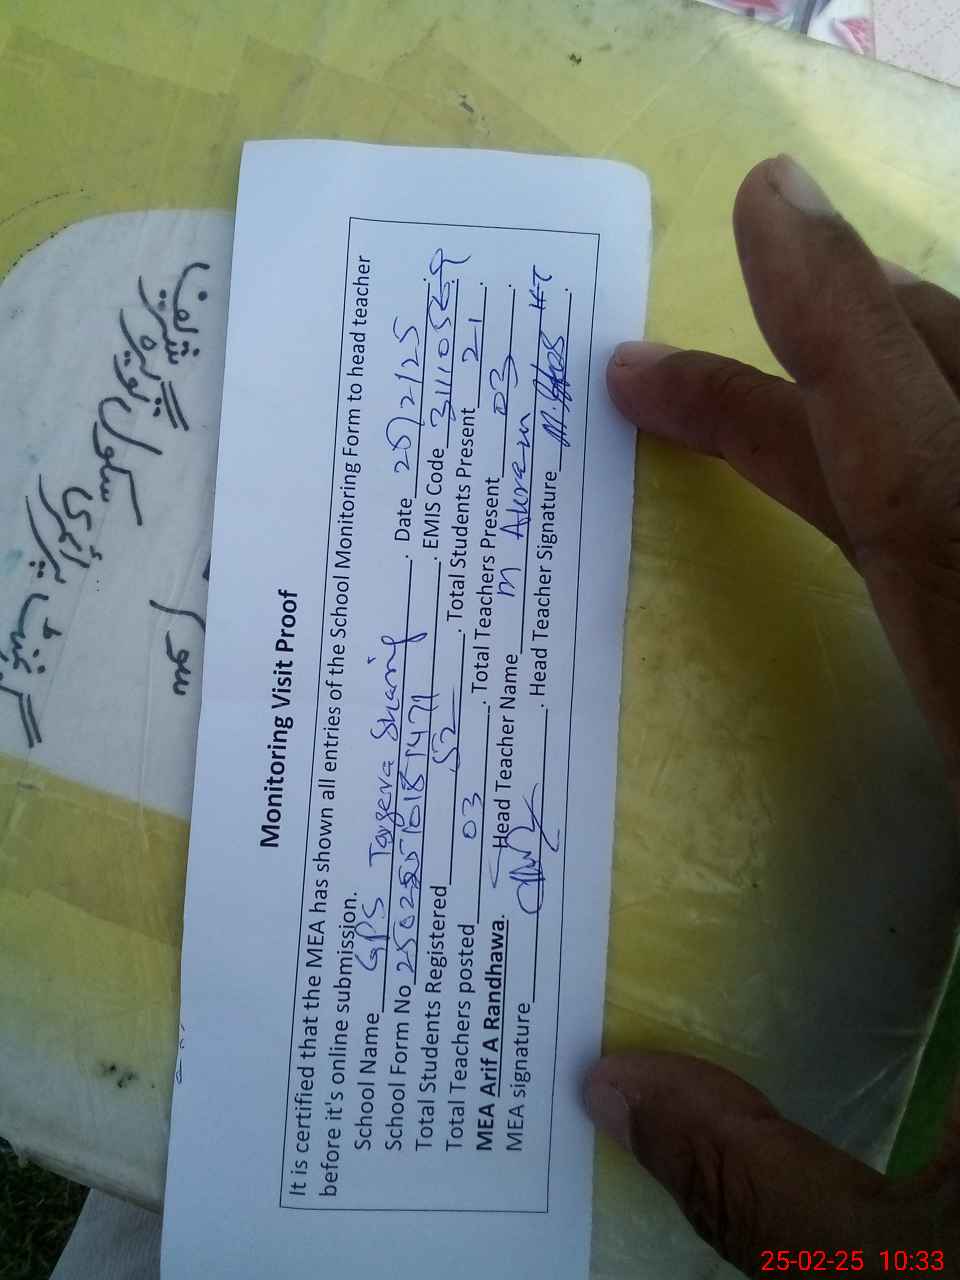 Monitoring Visit Proof
It is certified that the MEA has shown all entries of the School Monitoring Form to head teacher
before it's online submission.
School Name GPS Taygera Sharif. Date 25/2/25
School Form No. EMIS Code
Total Students Registered 52. Total Students Present 21.
Total Teachers posted 03. Total Teachers Present 03.
MEA Arif A Randhawa. Head Teacher Name M Akram.
MEA signature. Head Teacher Signature H-T.
گورنمنٹ پرائمری سکول
شریف
25-02-25 10:33